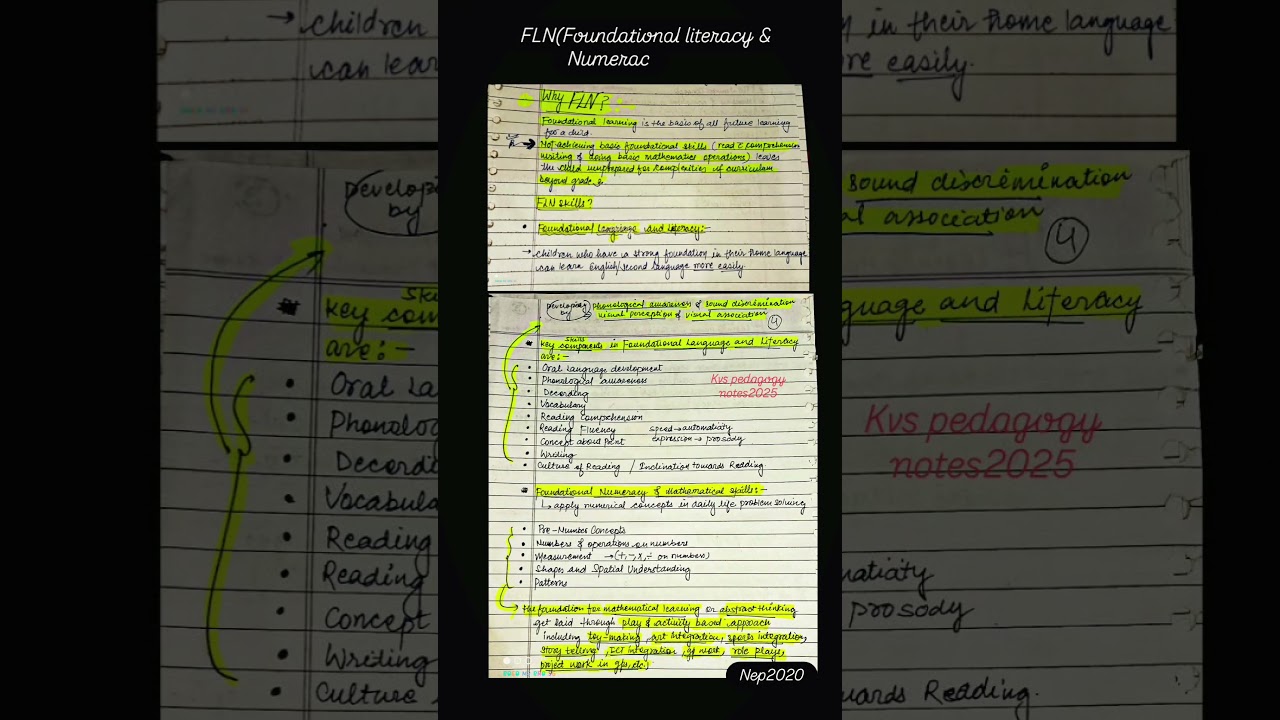 FLN(Foundational literacy &
Numerac
Why FLN? :-
Foundational learning is the basis of all future learning
for a child.
Not-achieving basic foundational skills (read & comprehension
writing & doing basic mathematics operations) leaves
the child unprepared for complexities of curriculum
beyond grade 3.
FLN Skills?
• Foundational Language and Literacy:-
→ children who have a strong foundation in their home language
can learn English/second language more easily
Developing phonological awareness & sound discrimination
by → visual perception & visual association
4
skills
* key components in Foundational Language and Literacy
are:-
• Oral language development
• Phonological awareness
• Decording
• Vocabulary
• Reading comprehension
• Reading Fluency speed → automaticity
• Concept about Print expression → prosody
• Writing
• Culture of Reading / Inclination towards Reading
Kvs pedagogy
notes2025
* Foundational Numeracy & Mathematical skills:-
↳ apply numerical concepts in daily life problem solving
• Pre-Number Concepts
• Numbers & operations on numbers
• Measurement → (+, -, x, ÷ on numbers)
• Shapes and Spatial Understanding
• Patterns
→ the foundation for mathematical learning or abstract thinking
get laid through play & activity based approach
including toy-making, art integration, sports integration,
story telling, ICT integration, gp work, role plays,
project work in gps, etc.)
Nep2020
→ children
can lear
in their home language
re easily.
Developi
by
sound discrimination
al association
4
Ski
* key com
are:-
guage and Literacy
• Oral La
• Phonolo
• Decordi
• Vocabula
• Reading
• Reading
• Concept
• Writing
• Culture
Kvs pedagogy
notes2025
maticity
prosody
wards Reading.